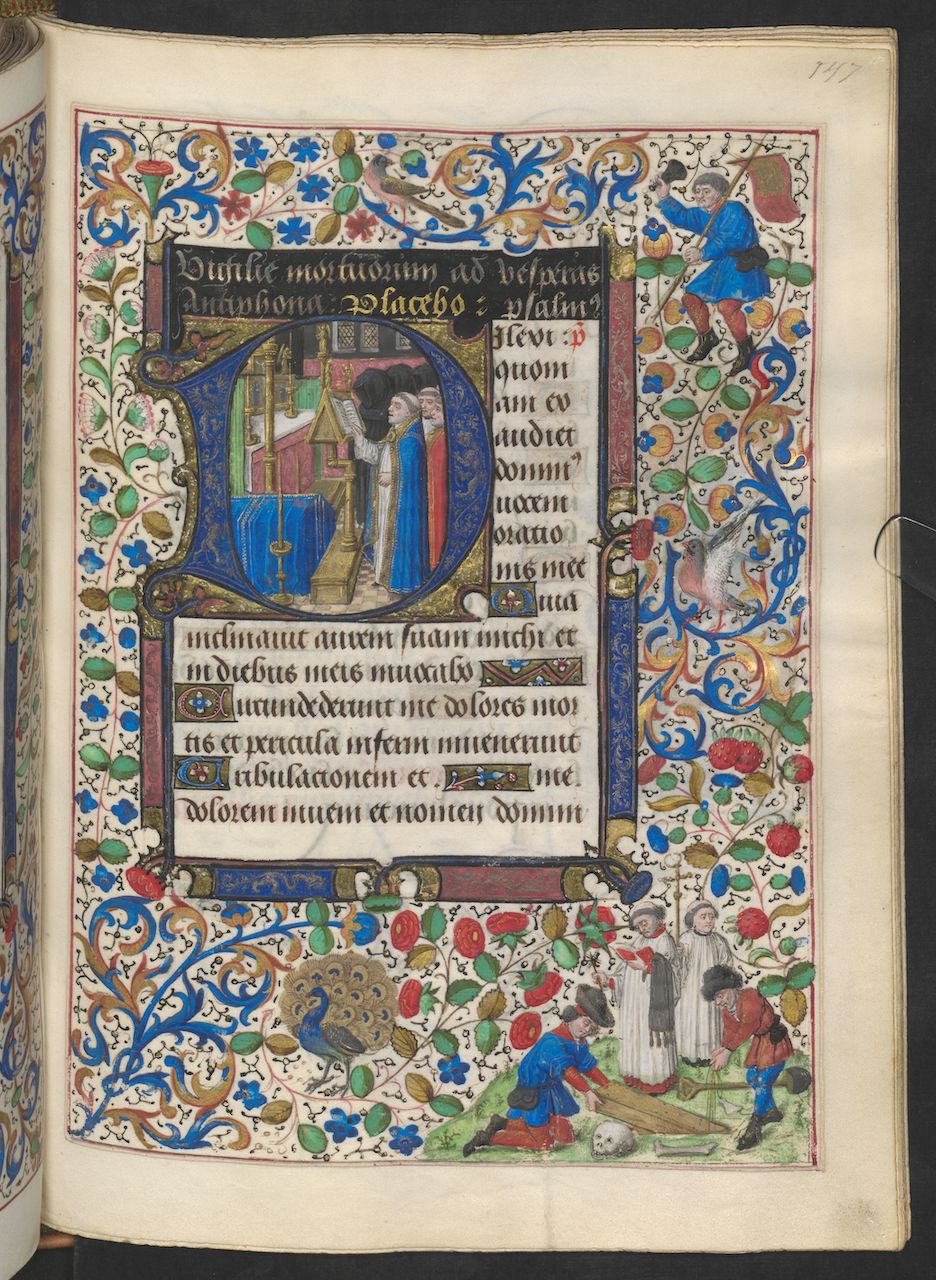 147
Vigilie mortuorum ad vesperas
Antiphona: Placebo: psalm⁹
Dilexi : p̄
quoni
am ex
audiet
domin⁹
uocem
oratio
nis mee
Quia
inclinauit aurem suam michi et
in diebus meis inuocabo
Circundederunt me dolores mor
tis et pericula inferni inuenerunt
Tribulacionem et me
dolorem inueni et nomen domini